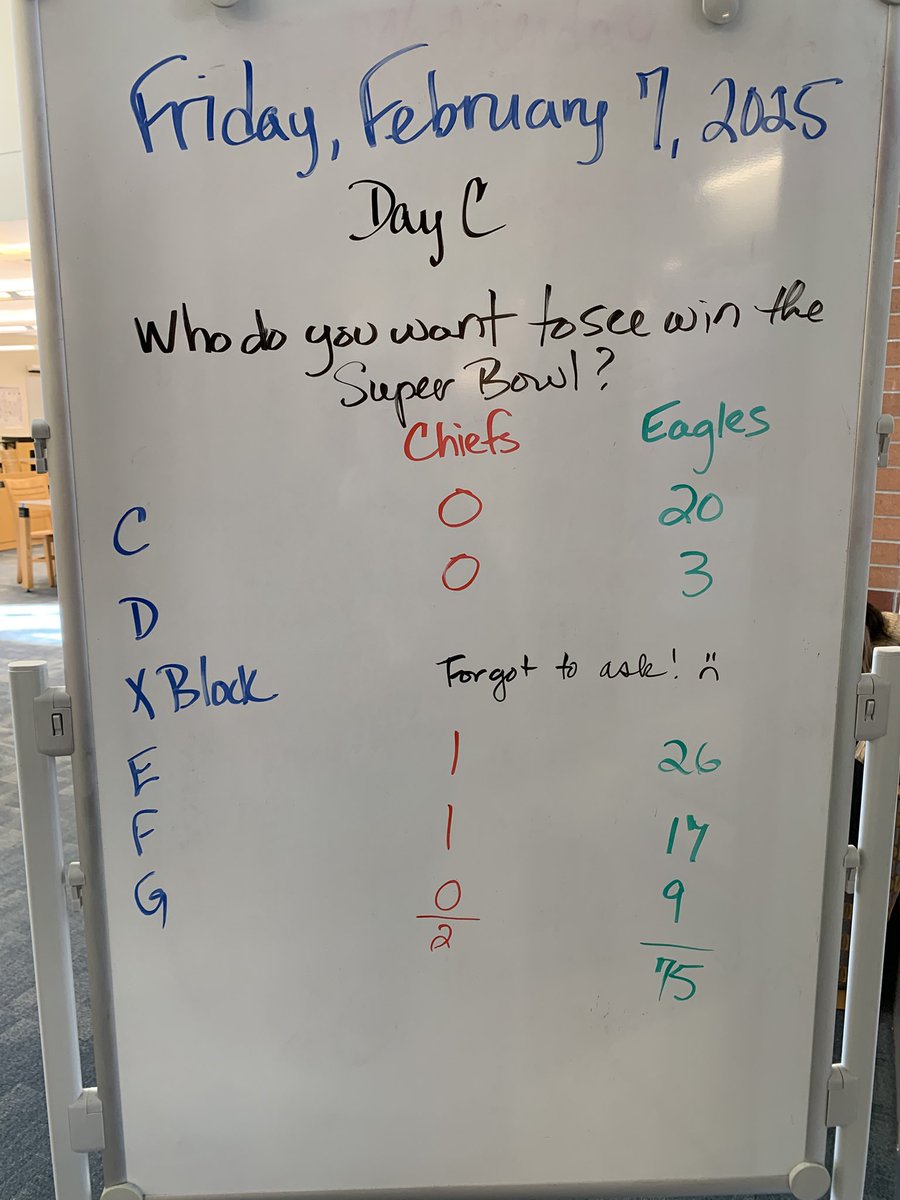 Friday, February 7, 2025
Day C
Who do you want to see win the
Super Bowl?
Chiefs Eagles
C 0 20
D 0 3
X Block Forgot to ask! :(
E 1 26
F 1 17
G 0 9
2 75